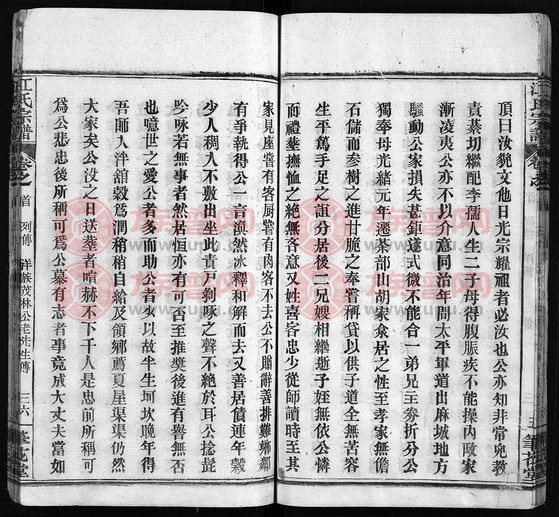 頂曰汝貌文他日光宗耀祖者必汝也公亦知非常兒教
責綦切繼配李孺人生二子母得腹脹疾不能操內政家
漸凌夷公亦不以介意同治年間太平軍道出麻城地方
騷動公家損失甚鉅遂式微不能合一弟兄三劵折分公
獨奉母光緒元年遷茶部山胡家灸居之性至孝家無儋
石儲而參樹之進甘脆之奉嘗稱貸以供子道全無苦
生平篤手足之誼分居後二兄嫂相繼逝子姪無依公憐
而禮葬撫恤之絕無吝意又姓喜客忠少從師讀時至其
家見座嘗有客厨嘗有肉客不去公不賜辭善排難鄉鄰
有爭執得公一言渙然冰釋和解而去又善居債連年穀
少人稠人不敷出坐此責戸剝啄之聲不絕於耳公捻髭
吟咏若無事者然居恒亦有可否至推獎後進有譽無否
也噫世之愛公者多而助公者少以故半生坷坎晚年得
吾師入泮舘穀爲潤稍稍自給及領鄉薦夏屋渠渠仍然
大家矣公沒之日送葬者喧赫不下千人是忠前所稱可
爲公悲忠後所稱可爲公慕有志者事竟成大丈夫當如
江氏宗譜
卷之
首 列傳 祥族茂林公老先生傳 三六
江氏宗譜
族譜网
zupu.cn